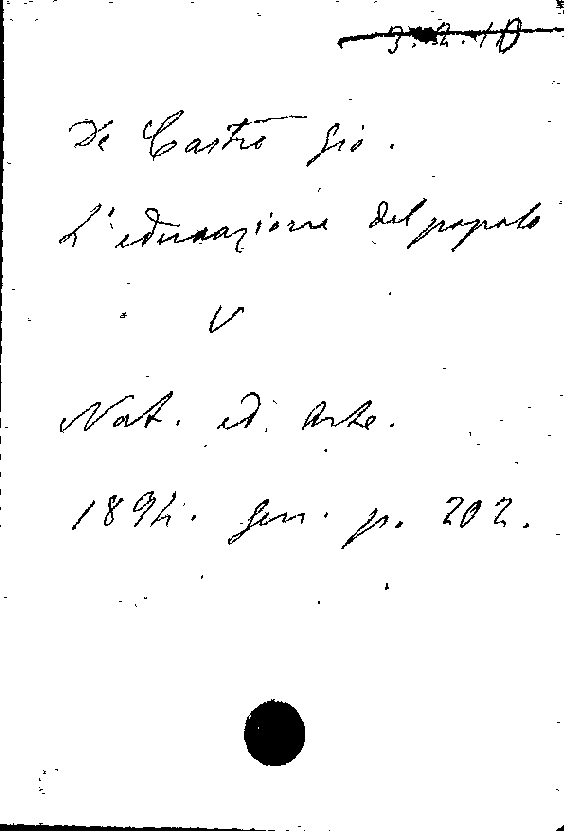 3.2.10
De Castro Gio.
L'educazione del popolo
V
Nat. ed Arte.
1894. Gen. p. 202.